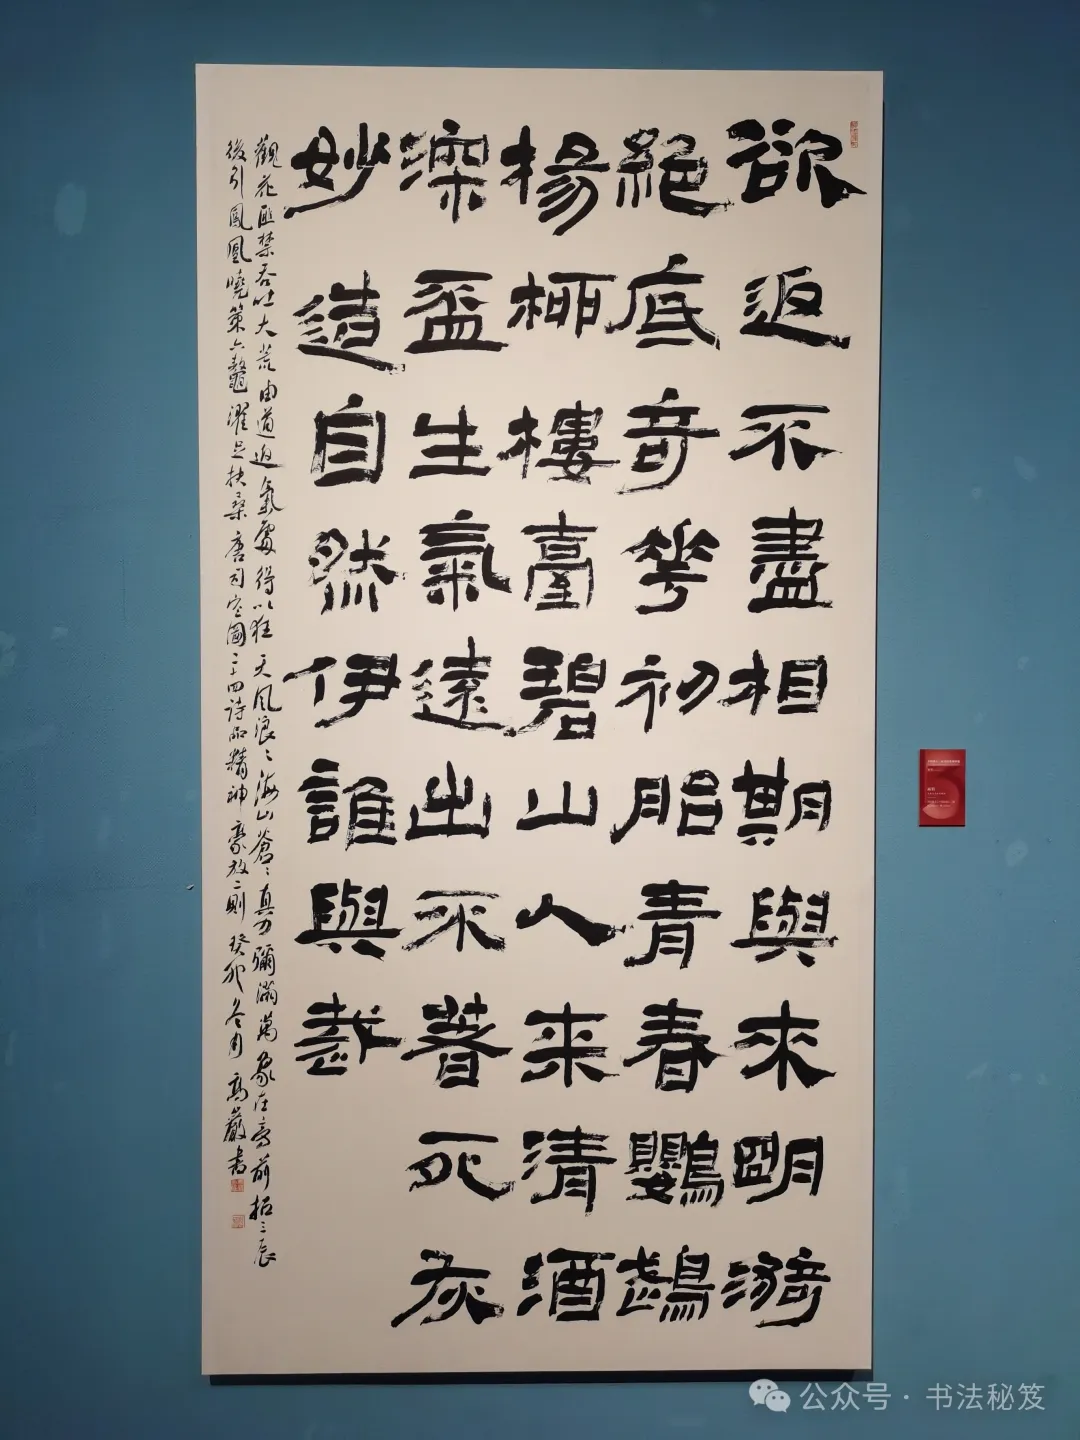 欲返不盡相期與來明漪
絕底奇花初胎青春鸚鵡
楊柳樓臺碧山人來清酒
深盃生氣遠出不著死灰
妙造自然伊誰與裁
觀花匪禁吞吐大荒由道返氣處得以狂天風浪〻海山蒼〻真力彌滿萬象在旁前招三辰
後引鳳凰曉策六鼇濯足扶桑唐司空圖二十四詩品精神豪放二則癸卯冬月高嚴書
公众号·书法秘笈